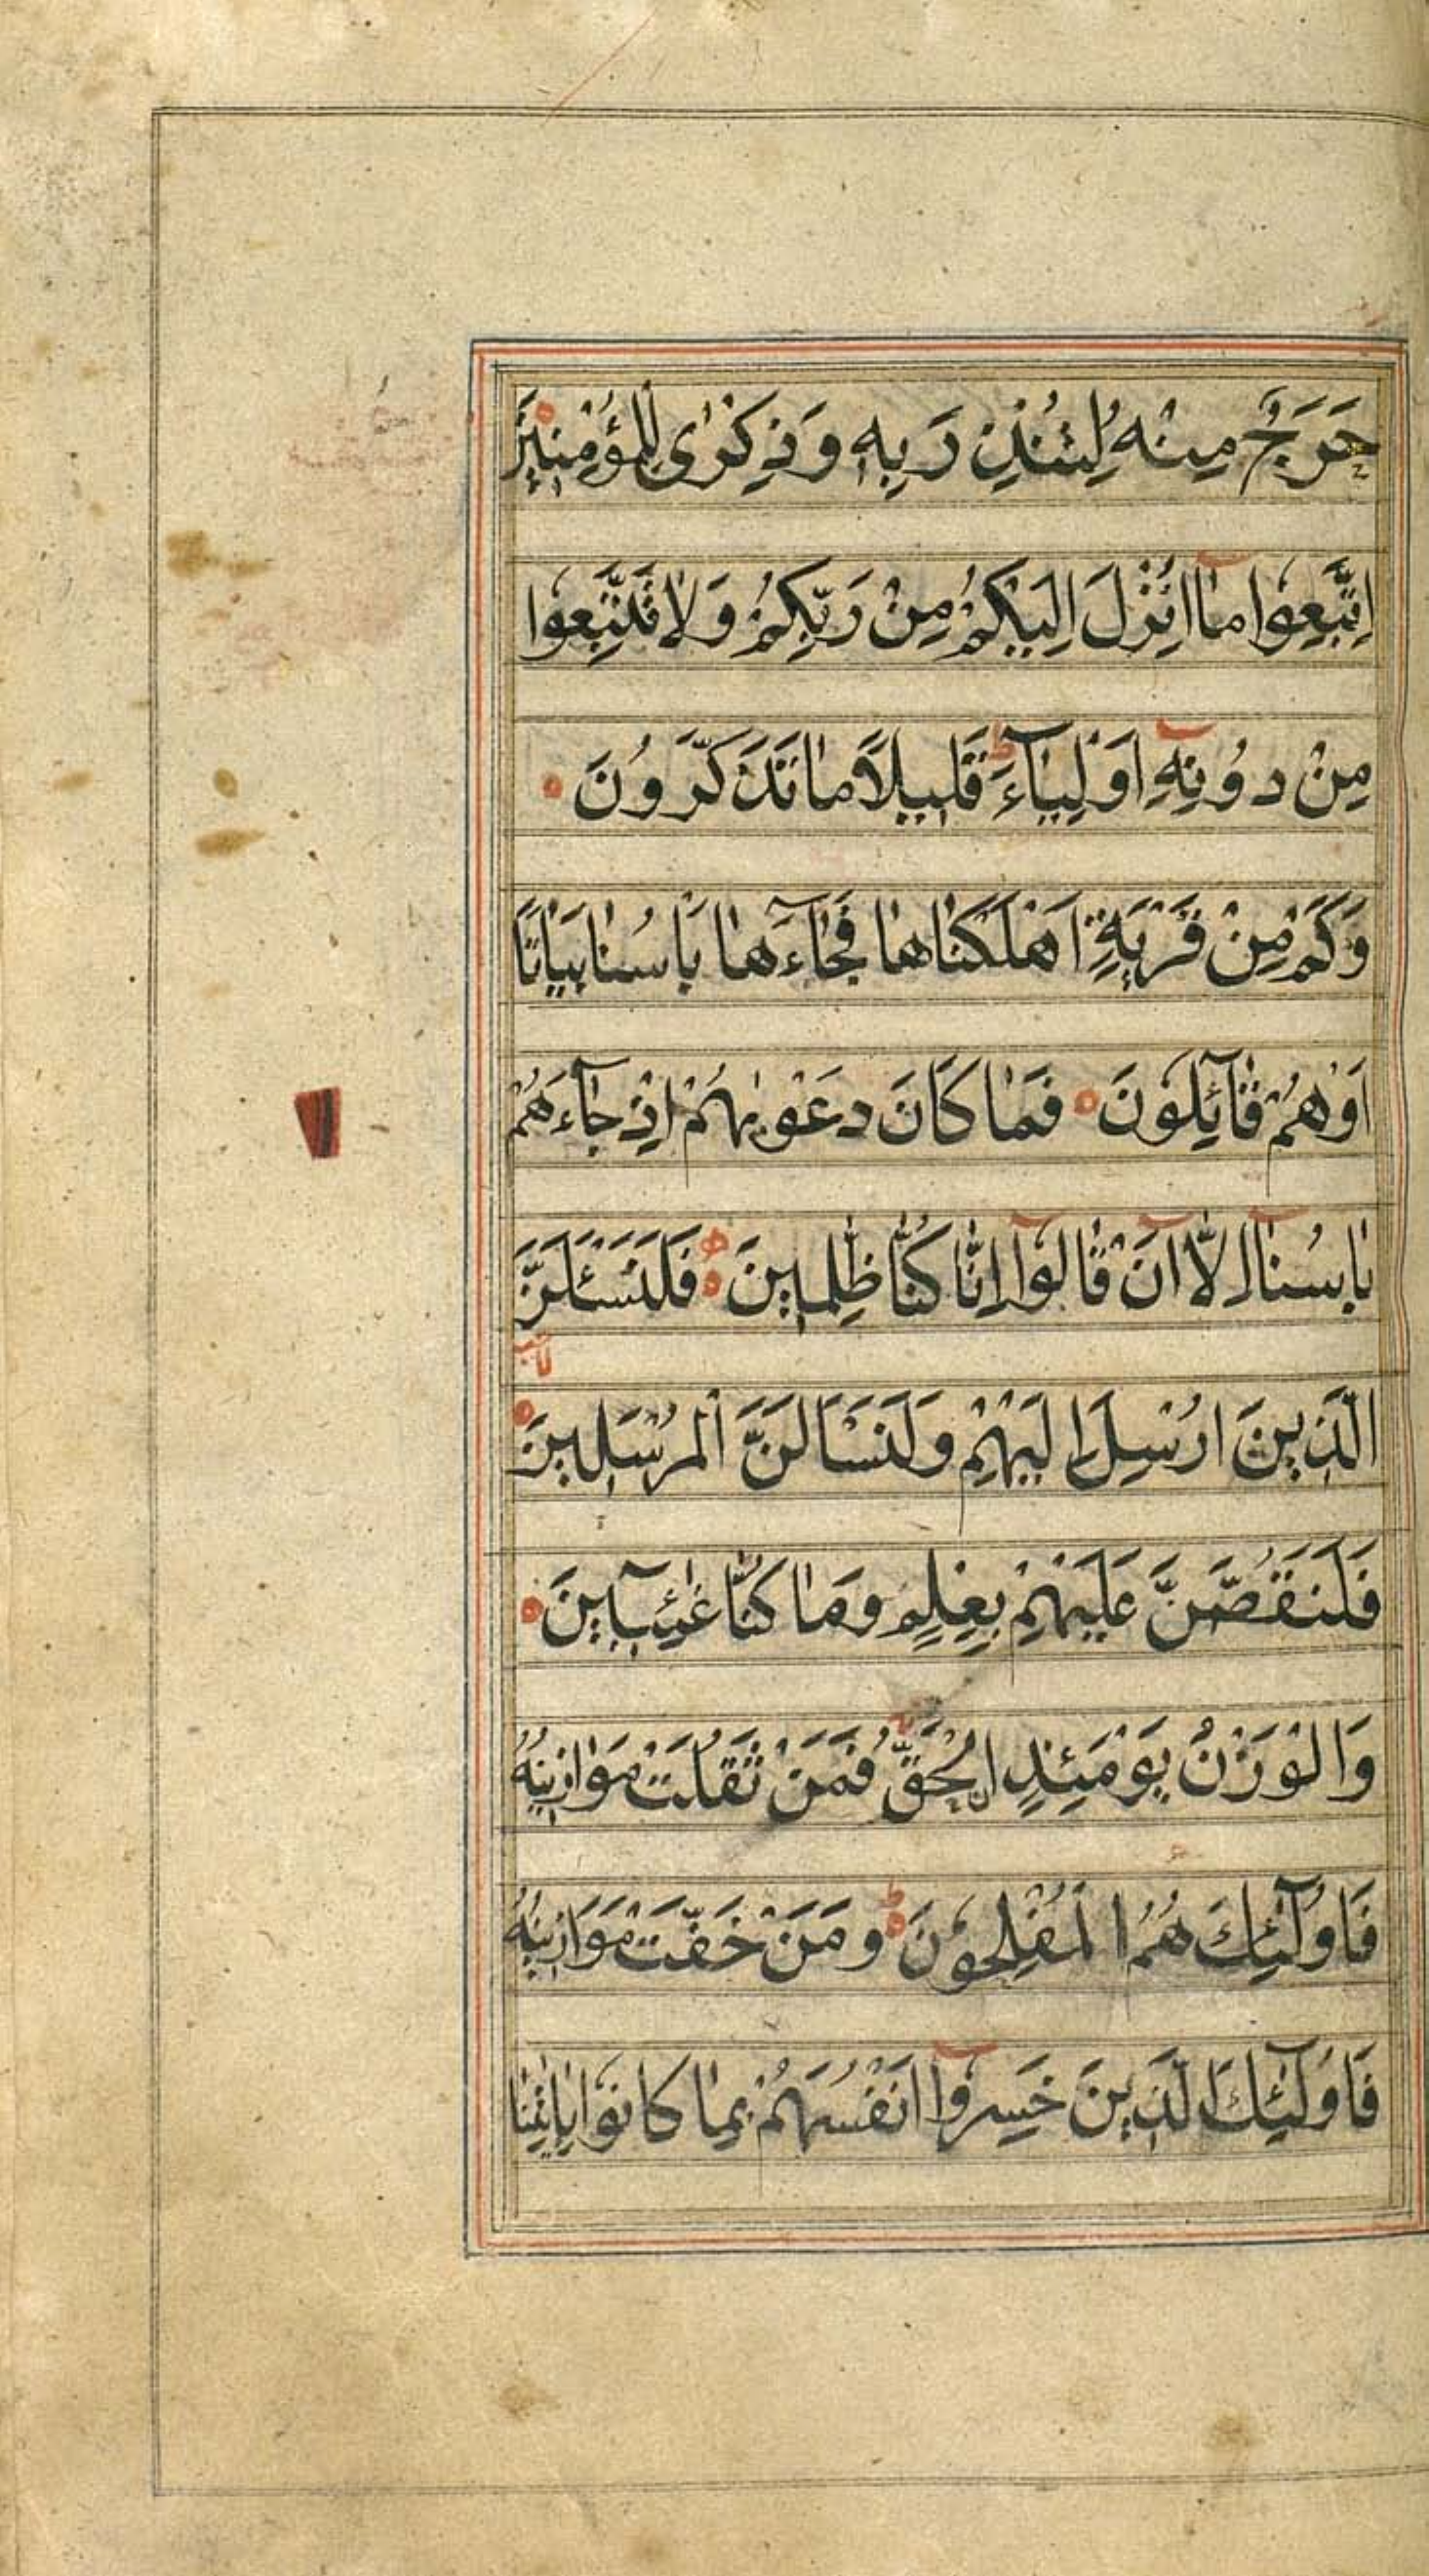 حَرَجٌ مِنْهُ لِتُنْذِرَ بِهِ وَذِكْرٰى لِلْمُؤْمِنِينَ
اِتَّبِعُوا مٰا اُنْزِلَ اِلَيْكُمْ مِنْ رَبِّكُمْ وَلٰا تَتَّبِعُوا
مِنْ دُونِهِ اَوْلِيٰآءَ ط قَلِيلًا مٰا تَذَكَّرُونَ
وَكَمْ مِنْ قَرْيَةٍ اَهْلَكْنٰاهٰا فَجٰآءَهٰا بَأْسُنٰا بَيٰاتًا
اَوْ هُمْ قٰآئِلُونَ فَمٰا كَانَ دَعْوٰيهُمْ اِذْ جٰآءَهُمْ
بَأْسُنٰآ اِلّٰآ اَنْ قٰالُوآ اِنّٰا كُنّٰا ظٰلِمِينَ فَلَنَسْئَلَنَّ
الَّذِينَ اُرْسِلَ اِلَيْهِمْ وَلَنَسْأَلَنَّ الْمُرْسَلِينَ
فَلَنَقُصَّنَّ عَلَيْهِمْ بِعِلْمٍ وَمٰا كُنّٰا غٰآئِبِينَ
وَالْوَزْنُ يَوْمَئِذٍ الْحَقُّ فَمَنْ ثَقُلَتْ مَوٰازِينُهُ
فَاُولٰٓئِكَ هُمُ الْمُفْلِحُونَ ط وَمَنْ خَفَّتْ مَوَازِينُهُ
فَاُولٰٓئِكَ الَّذِينَ خَسِرُوآ اَنْفُسَهُمْ بِمٰا كٰانُوا بِاٰيٰتِنٰا